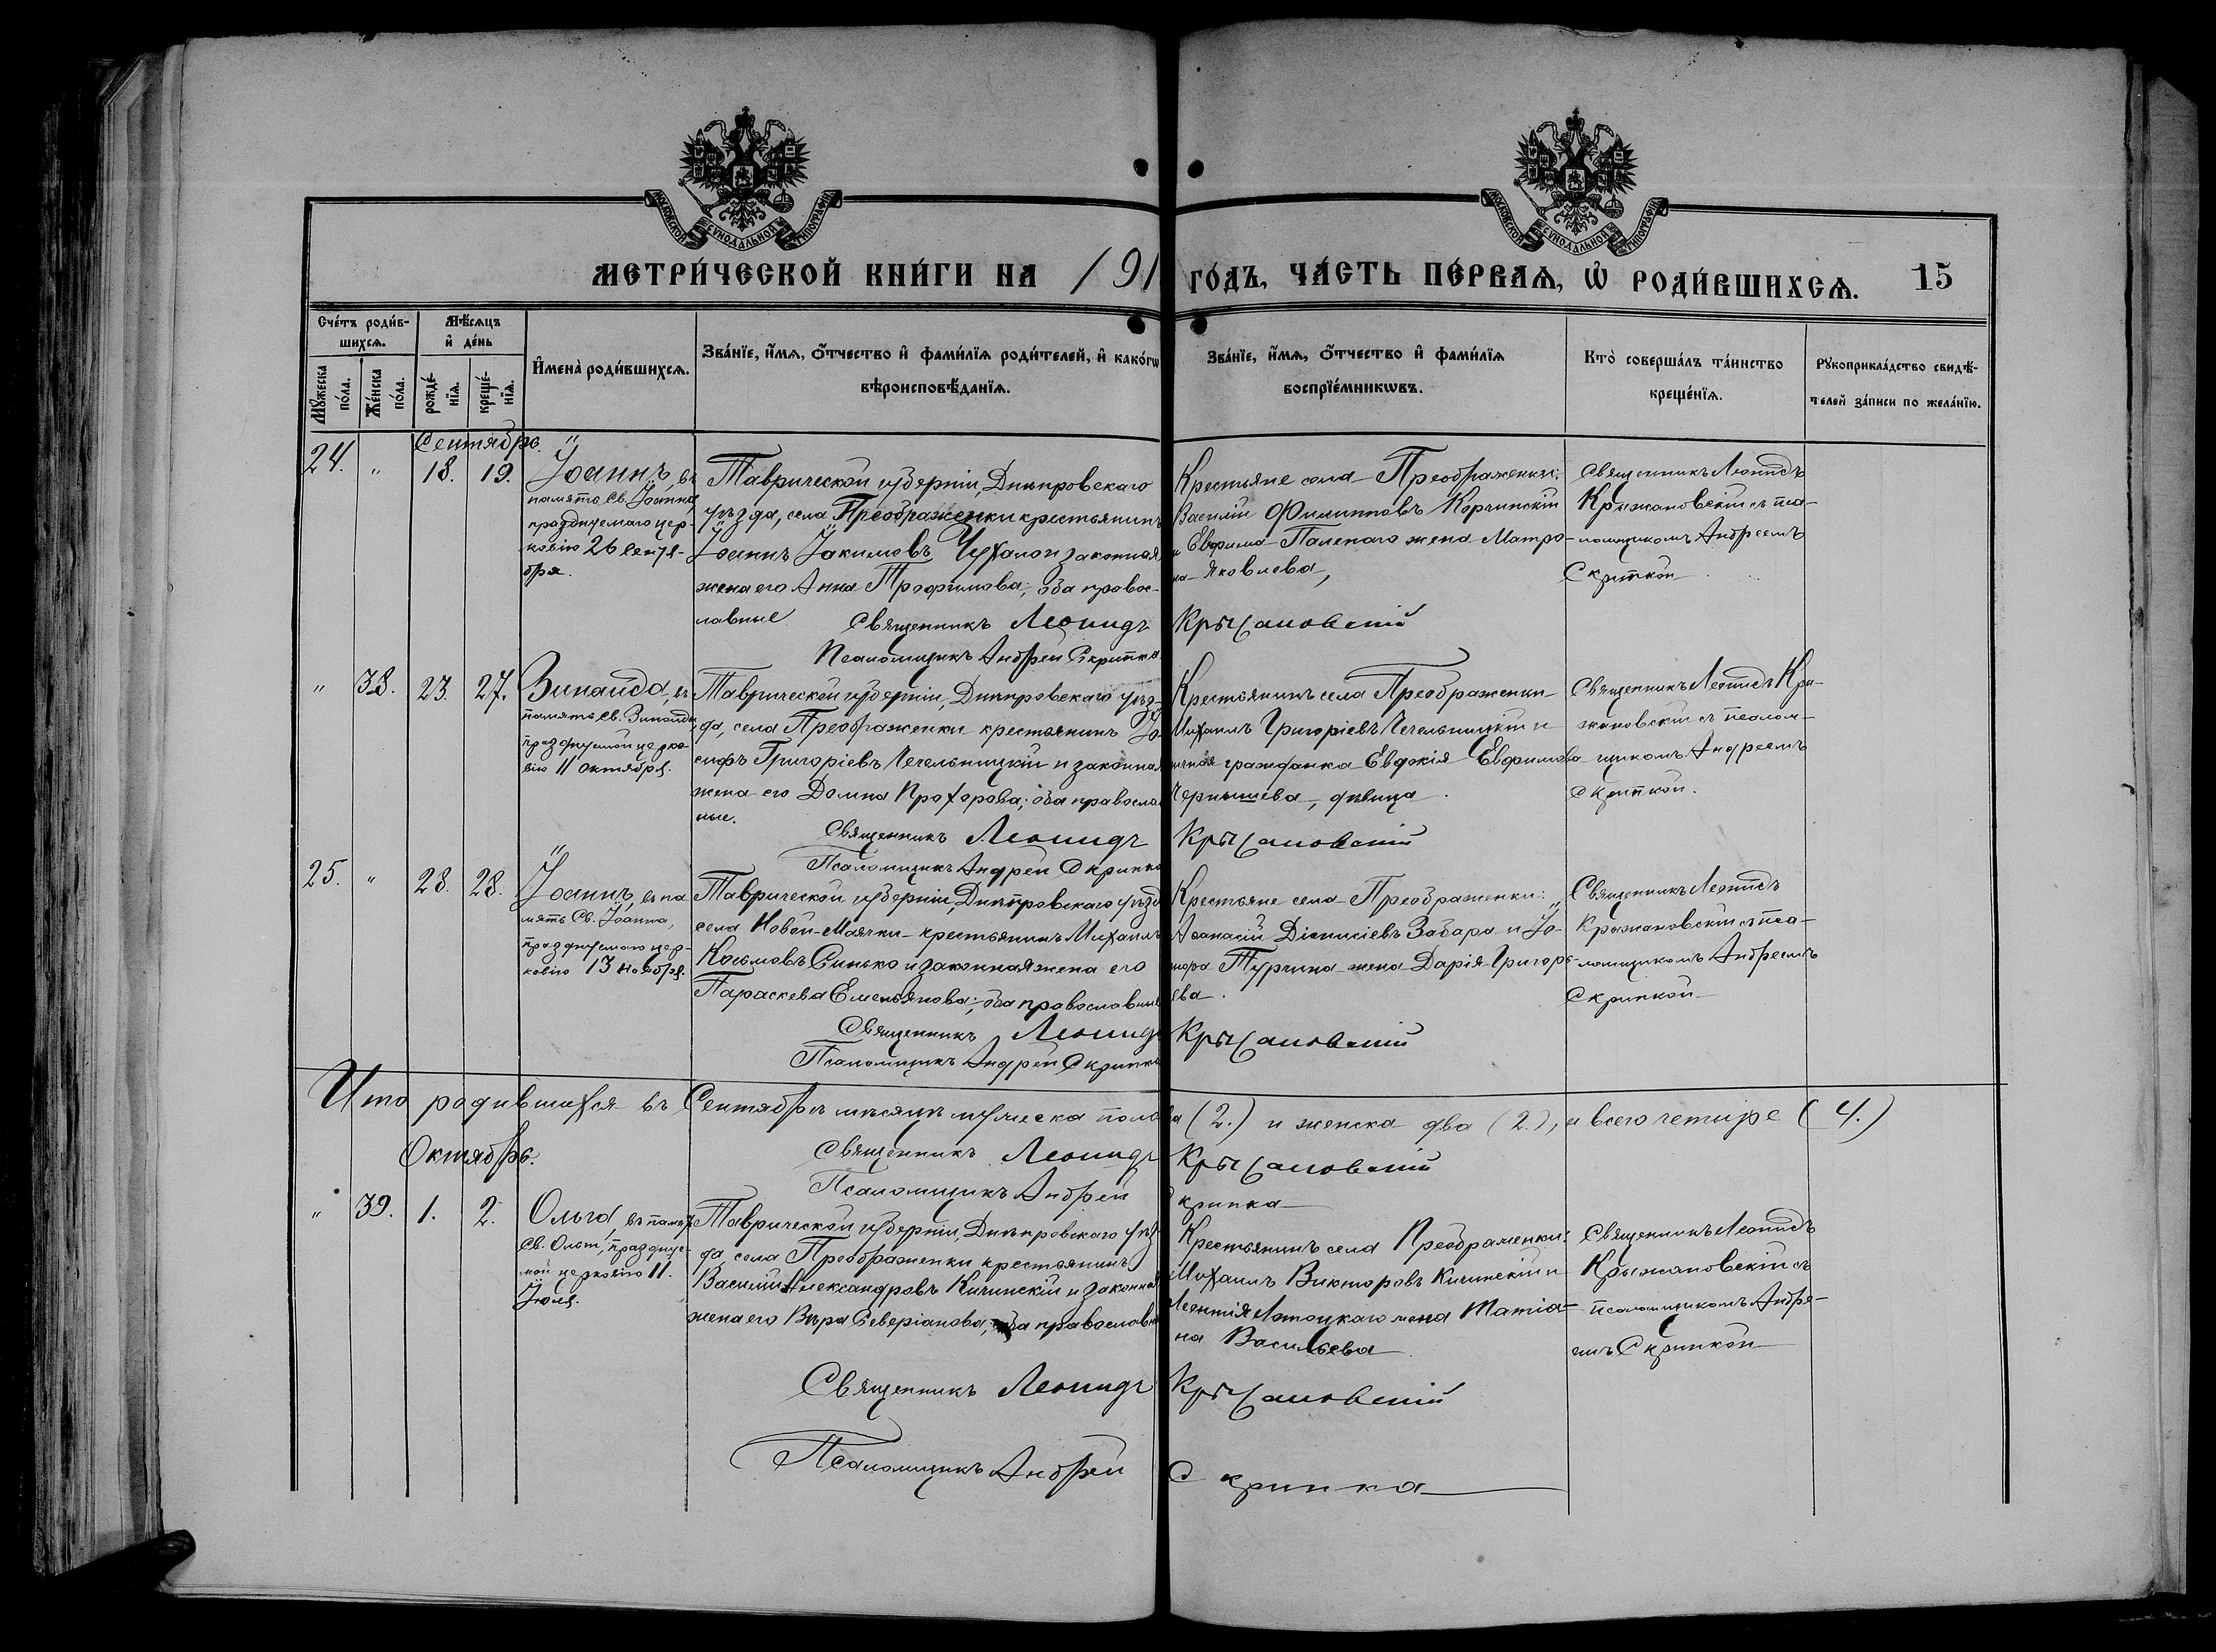 МОСКОВСКОЙ СѴНОДАЛЬНОЙ ТИПОГРАФІИ
МОСКОВСКОЙ СѴНОДАЛЬНОЙ ТИПОГРАФІИ
МЕТРИ́ЧЕСКОЙ КНИ́ГИ НА 191
ГО́ДЪ, ЧА́СТЬ ПЕ́РВАѦ, Ѡ҆ РОДИ́ВШИХСѦ. 15
Сче́тъ роди́в-
шихсѧ.
Мѣ́сѧцъ
и҆ де́нь
Мꙋ́жеска
по́ла.
Же́нска
по́ла.
рожде́-
нїѧ.
креще́-
нїѧ.
И҆мена̀ роди́вшихсѧ.
Зва́нїе, и҆́мѧ, ѻ҆́тчество и҆ фами́лїѧ роди́телей, и҆ како́гѡ
вѣроисповѣ́данїѧ.
Зва́нїе, и҆́мѧ, ѻ҆́тчество и҆ фами́лїѧ
воспрїе́мникѡвъ.
Кто̀ соверша́лъ та́инство
креще́нїѧ.
Рꙋкоприкла́дство свидѣ́-
телей за́писи по жела́нїю.
Сентябрь.
24. " 18. 19. Іоаннъ, въ
память Св. Іоанна,
празднуемаго цер-
ковію 26 Сентя-
бря.
Таврической губерніи, Днѣпровскаго
уѣзда, села Преображенки крестьянинъ
Іоаннъ Іакимовъ Чухало и законная
жена его Анна Трофимова; оба правос-
лавные.
Священникъ Леонидъ
Псаломщикъ Андрей Скрипка
Крестьяне села Преображенки:
Василій Филипповъ Корчинскій
и Евфима Паленаго жена Матро-
на Яковлева,
Крыжановскій
Священникъ Леонидъ
Крыжановскій съ пса-
ломщикомъ Андреемъ
Скрипкой
" 38. 23. 27. Зинаида, въ
память Св. Зинаиды,
празднуемой церко-
вію 11 октября.
Таврической губерніи, Днѣпровскаго уѣз-
да, села Преображенки крестьянинъ Іо-
сифъ Григоріевъ Чечельницкій и законная
жена его Домна Прохорова; оба православ
ные.
Священникъ Леонидъ
Псаломщикъ Андрей Скрипка
Крестьянинъ села Преображенки
Михаилъ Григоріевъ Чечельницкій и
гражданка Евдокія Евфимова
Чернышева, дѣвица.
Крыжановскій
Священникъ Леонидъ Кры-
жановскій съ псалом-
щикомъ Андреемъ
Скрипкой.
25. " 28. 28. Іоаннъ, въ па
мять Св. Іоанна,
празднуемаго цер-
ковію 13 ноября.
Таврической губерніи, Днѣпровскаго уѣзд
села Новой-Маячки крестьянинъ Михаилъ
Косьмовъ Синько и законная жена его
Параскева Емельянова; оба православные
Священникъ Леонидъ
Псаломщикъ Андрей Скрипка
Крестьяне села Преображенки:
Афанасій Діонисіевъ Забара и Іо-
Турчина жена Дарія Григорь
ева.
Крыжановскій
Священникъ Леонидъ
Крыжановскій съ пса-
ломщикомъ Андреемъ
Скрипкой
Итого родившихся въ Сентябрѣ мѣсяцѣ мужеска пола два (2.) и женска два (2.), и всего четыре (4.)
Священникъ Леонидъ Крыжановскій
Псаломщикъ Андрей Скрипка
Октябрь.
" 39. 1. 2. Ольга, въ память
Св. Ольги, празднуе-
мой церковію 11.
Іюля.
Таврической губерніи, Днѣпровскаго уѣз
да, села Преображенки крестьянинъ
Василій Александровъ Кичинскій и законная
жена его Вѣра Северіанова; оба православн
Священникъ Леонидъ
Псаломщикъ Андрей
Крестьянинъ села Преображенки:
Михаилъ Викторовъ Кичинскій и
Леонтія Лотоцкаго жена Матіа-
на Васильева
Крыжановскій
Скрипка
Священникъ Леонидъ
Крыжановскій съ
псаломщикомъ Андре-
емъ Скрипкой